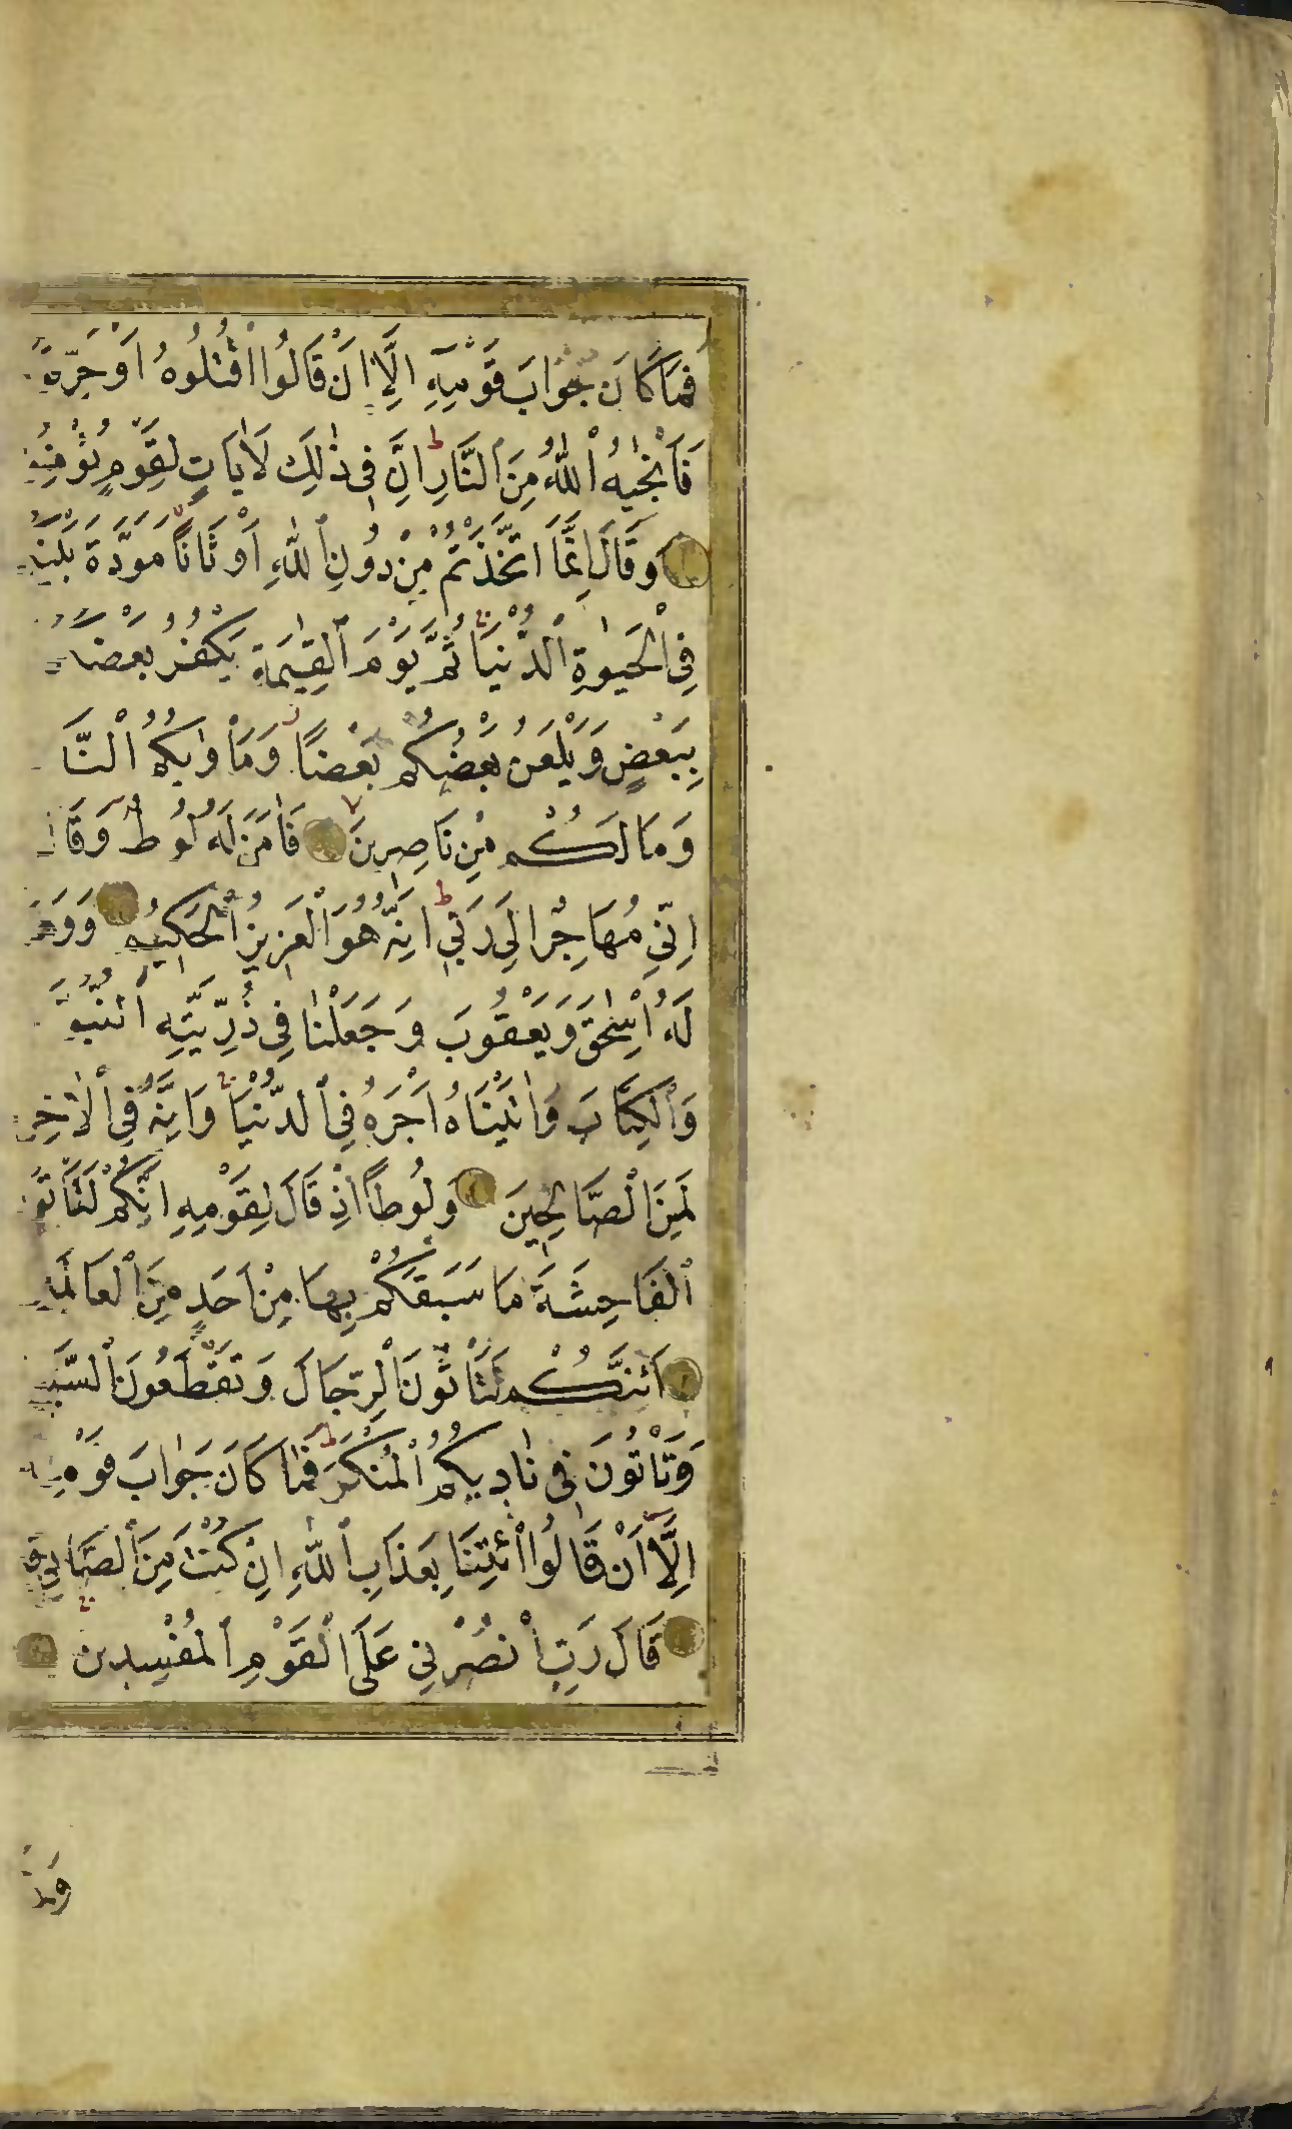 فَمَا كَانَ جَوَابَ قَوْمِهِٓ اِلَّٓا اَنْ قَالُوا اقْتُلُوهُ اَوْ حَرِّقُ
فَاَنْجٰيهُ اللّٰهُ مِنَ النَّارِ ط اِنَّ فِى ذٰلِكَ لَاٰيَاتٍ لِقَوْمٍ يُؤْمِنُ
وَقَالَ اِنَّمَا اتَّخَذْتُمْ مِنْ دُونِ اللّٰهِ اَوْثَانًا مَوَدَّةَ بَيْنِ
فِى الْحَيٰوةِ الدُّنْيَا ثُمَّ يَوْمَ الْقِيٰمَةِ يَكْفُرُ بَعْضُ
بِبَعْضٍ وَيَلْعَنُ بَعْضُكُمْ بَعْضًا وَمَاْوٰيكُمُ النَّا
وَمَا لَكُمْ مِنْ نَاصِرِينَ فَاٰمَنَ لَهُ لُوطٌ وَقَالَ
اِنِّى مُهَاجِرٌ اِلٰى رَبِّى ط اِنَّهُ هُوَ الْعَزِيزُ الْحَكِيمُ وَوَ
لَهُ اِسْحٰقَ وَيَعْقُوبَ وَجَعَلْنَا فِى ذُرِّيَّتِهِ النُّبُوَّ
وَالْكِتَابَ وَاٰتَيْنَاهُ اَجْرَهُ فِى الدُّنْيَا وَاِنَّهُ فِى الْاٰخِرَ
لَمِنَ الصَّالِحِينَ وَلُوطًا اِذْ قَالَ لِقَوْمِهِ اِنَّكُمْ لَتَاْتُو
الْفَاحِشَةَ مَا سَبَقَكُمْ بِهَا مِنْ اَحَدٍ مِنَ الْعَالَمِ
اَئِنَّكُمْ لَتَاْتُونَ الرِّجَالَ وَتَقْطَعُونَ السَّبِ
وَتَاْتُونَ فِى نَادِيكُمُ الْمُنْكَرَ ط فَمَا كَانَ جَوَابَ قَوْمِهِ
اِلَّٓا اَنْ قَالُوا ائْتِنَا بِعَذَابِ اللّٰهِ اِنْ كُنْتَ مِنَ الصَّادِقِ
قَالَ رَبِّ انْصُرْنِى عَلَى الْقَوْمِ الْمُفْسِدِينَ